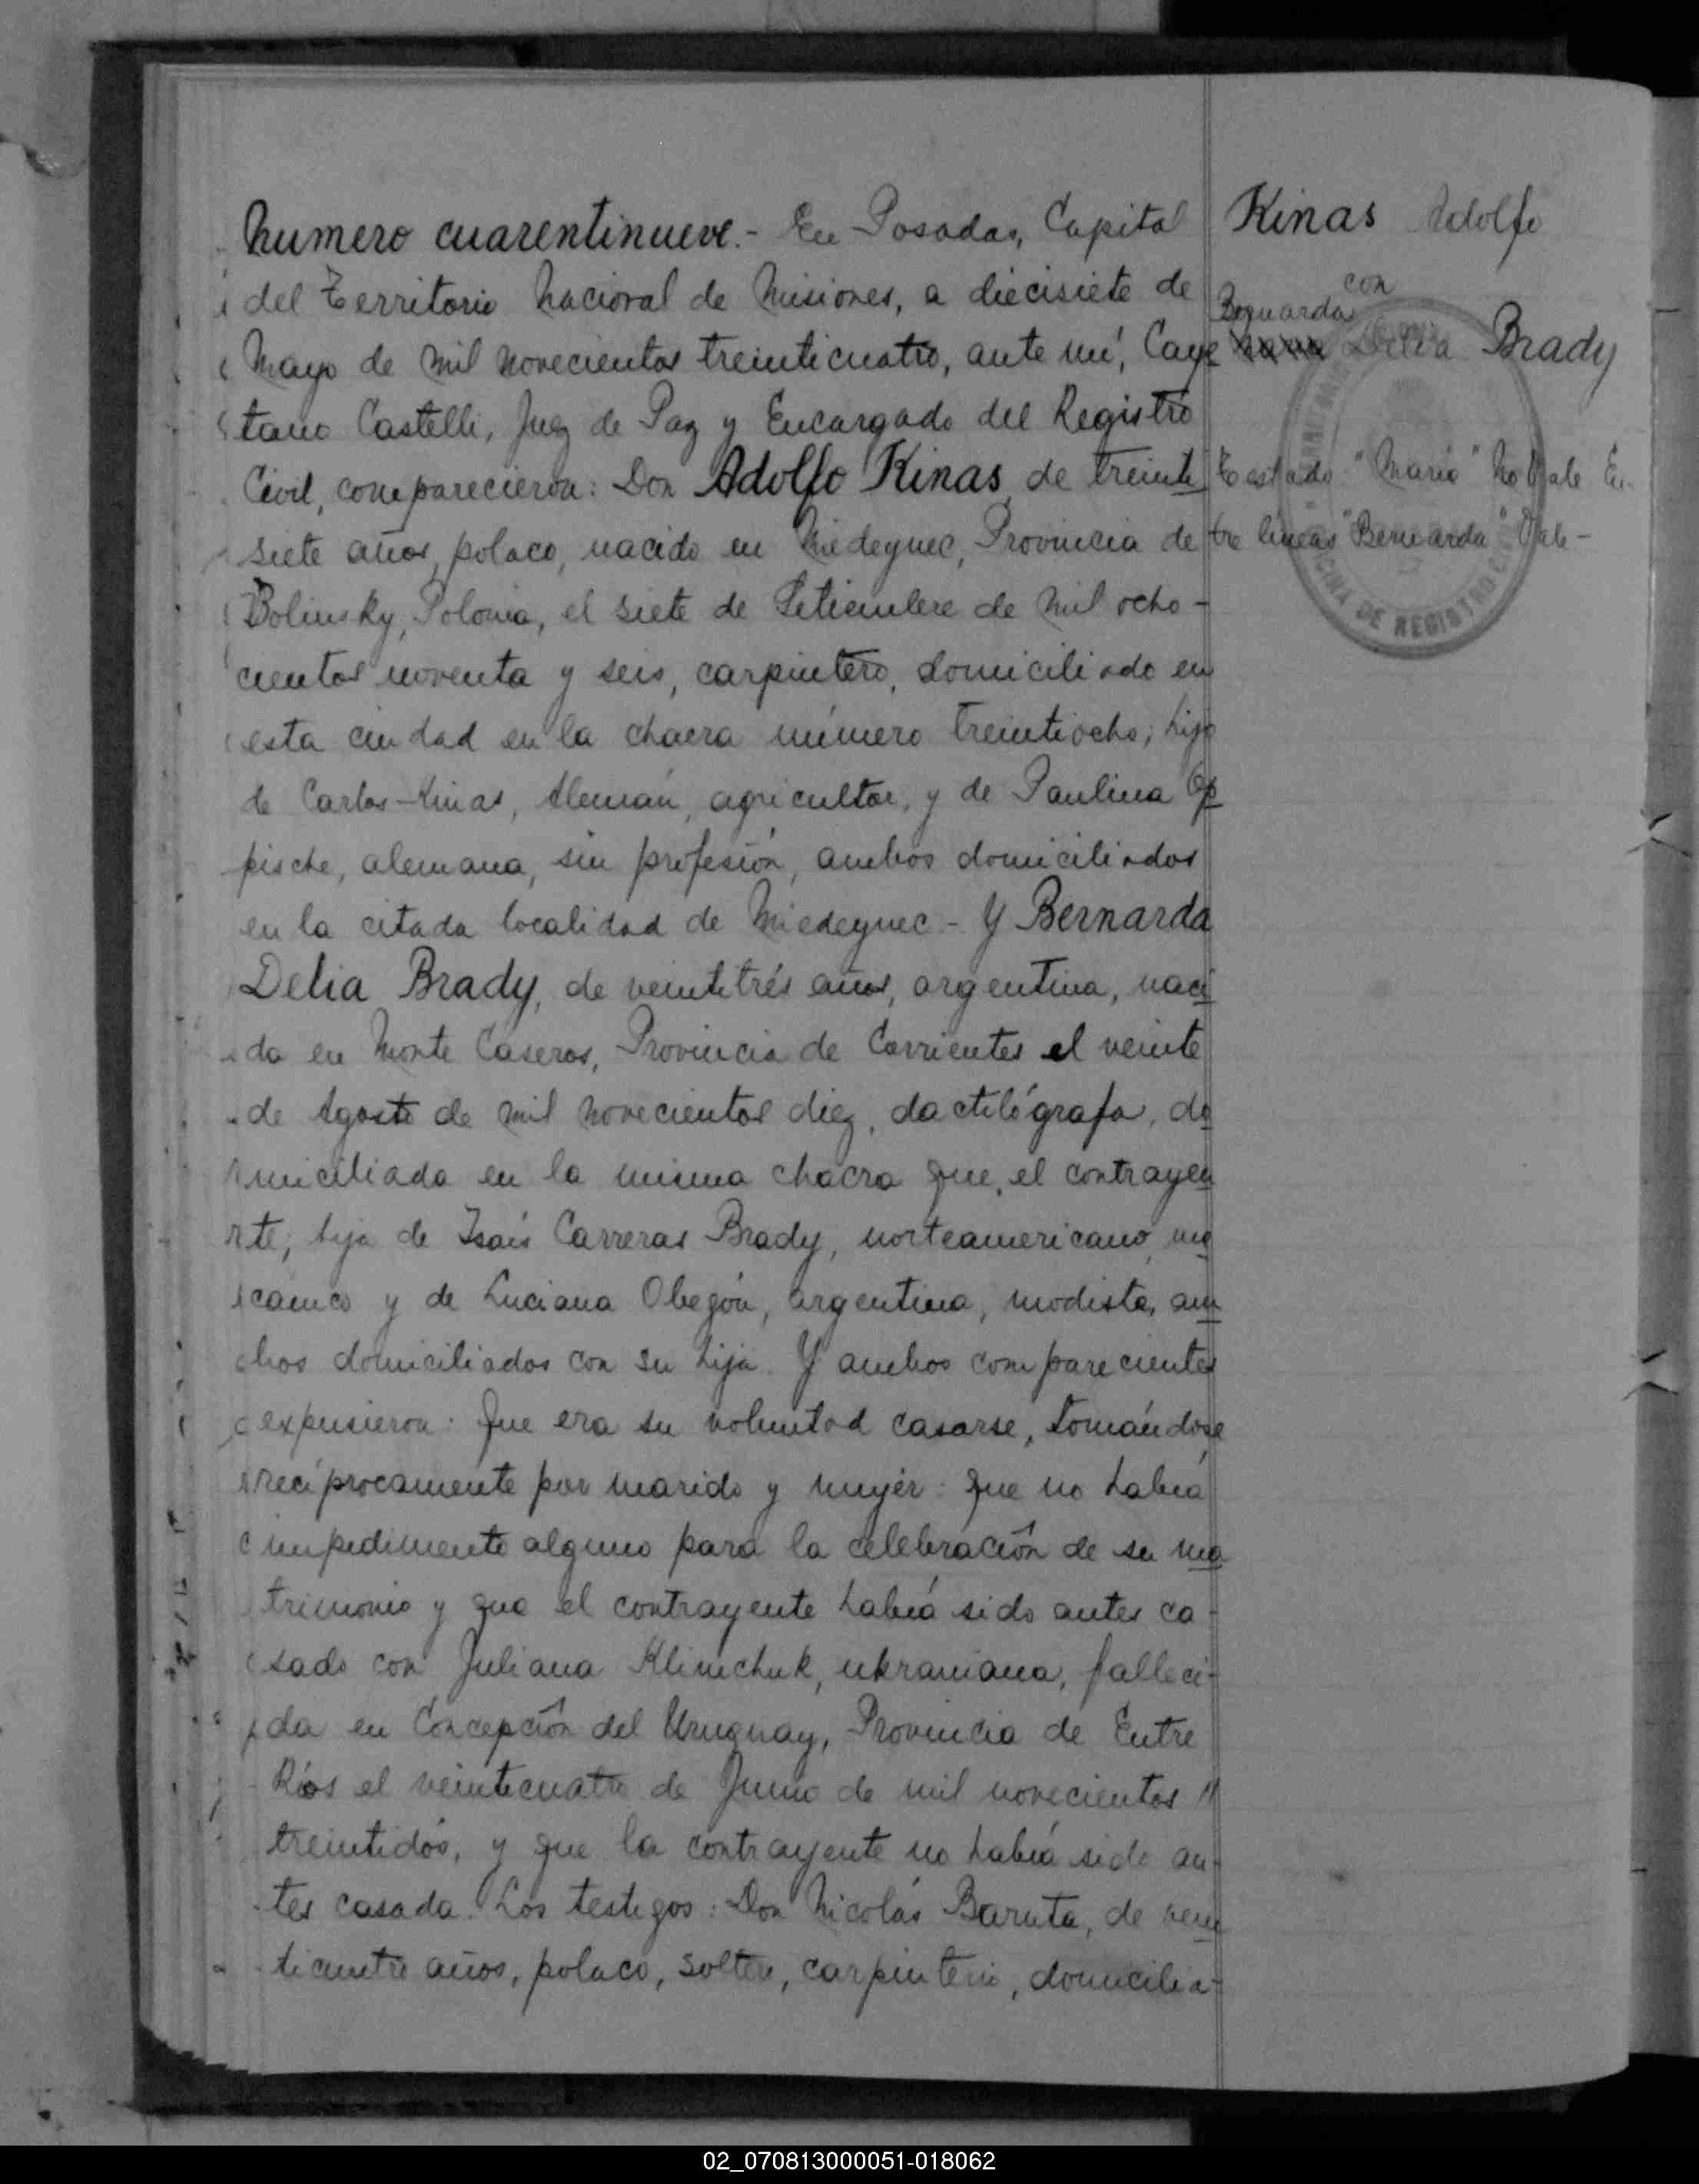 Numero cuarentinueve.- En Posadas, Capital
del Territorio Nacional de Misiones, a diecisiete de
Mayo de mil novecientos treinticuatro, ante mí, Caye
tano Castelli, Juez de Paz y Encargado del Registro
Civil, comparecieron: Don Adolfo Kinas, de treinti
siete años, polaco, nacido en Miedeynec, Provincia de
Bolinsky, Polonia, el siete de Setiembre de mil ocho-
cientos noventa y seis, carpintero, domiciliado en
esta ciudad en la chacra número treintiocho; hijo
de Carlos Kinas, Alemán, agricultor, y de Paulina Op
pische, alemana, sin profesión, ambos domiciliados
en la citada localidad de Miedeynec - Y Bernarda
Delia Brady, de veintitrés años, argentina, naci
da en Monte Caseros, Provincia de Corrientes el veinte
de Agosto de mil novecientos diez, dactilógrafa, do
miciliada en la misma chacra que el contrayen
te; hija de Isaís Carreras Brady, norteamericano, me
cánico y de Luciana Obegón, argentina, modista, am
bos domiciliados con su hija. Y ambos comparecientes
expusieron: Que era su voluntad casarse, tomándose
recíprocamente por marido y mujer: que no había
impedimento alguno para la celebración de su ma
trimonio y que el contrayente había sido antes ca-
sado con Juliana Klimchuk, ukraniana, falleci-
da en Concepción del Uruguay, Provincia de Entre
Ríos el veinticuatro de Junio de mil novecientos
treintidós, y que la contrayente no había sido an-
tes casada. Los testigos: Don Nicolás Baruta, de vein
ticuatro años, polaco, soltero, carpintero, domicilia-
Kinas Adolfo
con
Bernarda
Delia Brady
Testado "María" No Vale En-
tre líneas "Bernarda" Vale-
OFICINA DE REGISTRO
02_070813000051-018062